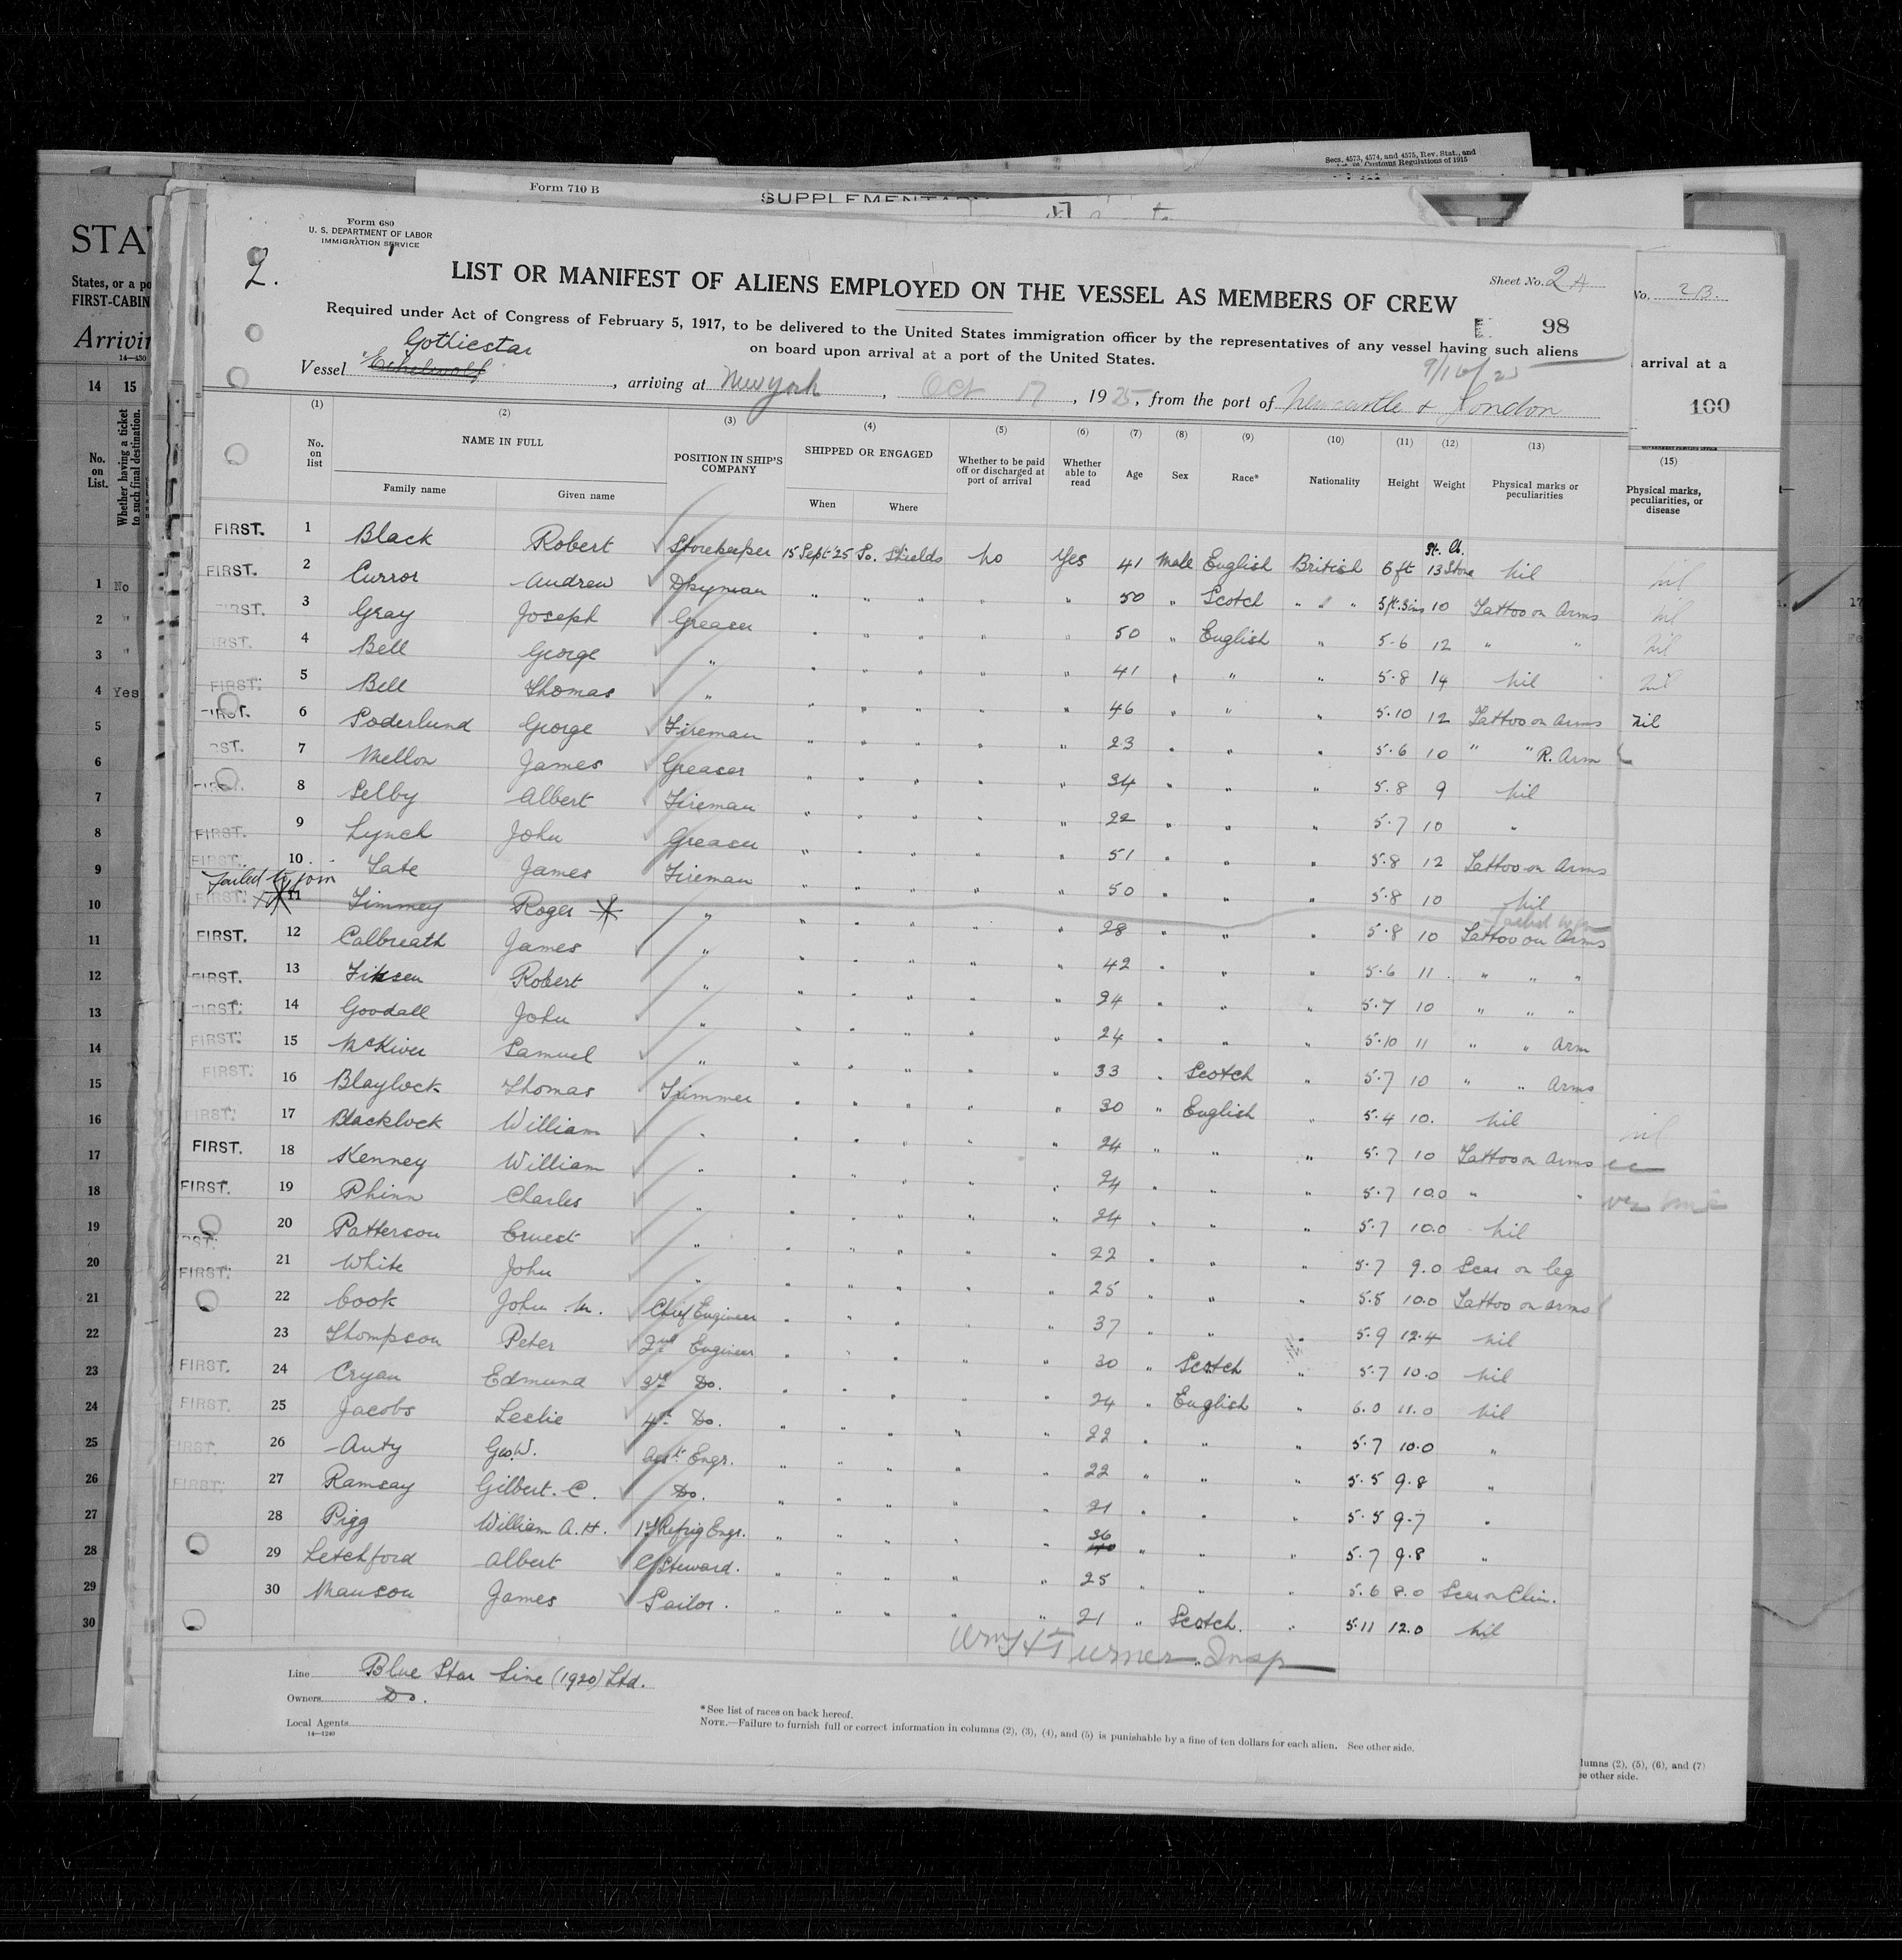 Secs. 4573, 4574, and 4575, Rev. Stat., and
Customs Regulations of 1915
Form 710 B
SUPPLEMENTARY
STA
States, or a po
FIRST-CABIN
Arrivin
14—430
Form 680
U. S. DEPARTMENT OF LABOR
IMMIGRATION SERVICE
2.
LIST OR MANIFEST OF ALIENS EMPLOYED ON THE VESSEL AS MEMBERS OF CREW
Sheet No. 2A
98
Required under Act of Congress of February 5, 1917, to be delivered to the United States immigration officer by the representatives of any vessel having such aliens
on board upon arrival at a port of the United States.
Gothicstar
Vessel Ethelwolf, arriving at New York, Oct 17, 1925, from the port of Newcastle & London
No. 2B.
arrival at a
100
(1) (2) (3) (4) (5) (6) (7) (8) (9) (10) (11) (12) (13)
No. on list NAME IN FULL POSITION IN SHIP'S COMPANY SHIPPED OR ENGAGED Whether to be paid off or discharged at port of arrival Whether able to read Age Sex Race* Nationality Height Weight Physical marks or peculiarities
Family name Given name When Where
(15)
Physical marks, peculiarities, or disease
14 15
No. on List.
Whether having a ticket to such final destination.
FIRST. 1 Black Robert Storekeeper 15 Sept '25 So. Shields No Yes 41 Male English British 6 ft 13 Stone Nil
FIRST. 2 Curror Andrew Dkyman " " " " " 50 " Scotch " " " 5 ft. 3 ins 10 Tattoo on Arms
FIRST. 3 Gray Joseph Greaser " " " " " 50 " English " 5-6 12 " "
FIRST. 4 Bell George " " " " " " 41 " " " 5.8 14 Nil
FIRST. 5 Bell Thomas " " " " " " 46 " " " 5.10 12 Tattoo on Arms
FIRST. 6 Soderlund George Fireman " " " " " 23 " " " 5.6 10 " " R. Arm
7 Mellon James Greaser " " " " " 34 " " " 5.8 9 Nil
FIRST. 8 Selby Albert Fireman " " " " " 22 " " " 5.7 10 "
FIRST. 9 Lynch John Greaser " " " " " 51 " " " 5.8 12 Tattoo on Arms
FIRST. 10 Tate James Fireman " " " " " 50 " " " 5.8 10 Nil
Failed to join
FIRST. 11 Timmey Roger " " " " " " 28 " " " 5.8 10 Tattoo on Arms
FIRST. 12 Calbreath James " " " " " " 42 " " " 5.6 11 " " "
FIRST. 13 Robert " " " " " " 24 " " " 5.7 10 " " "
FIRST. 14 Goodall John " " " " " " 24 " " " 5.10 11 " " Arm
FIRST. 15 McKiver Samuel " " " " " " 33 " Scotch " 5.7 10 " " Arms
FIRST. 16 Blaylock Thomas Trimmer " " " " " 30 " English " 5.4 10. Nil
FIRST. 17 Blacklock William " " " " " " 24 " " " 5.7 10 Tattoo on Arms
FIRST. 18 Kenney William " " " " " " 24 " " " 5.7 10.0 " "
FIRST. 19 Phinn Charles " " " " " " 24 " " " 5.7 10.0 Nil
20 Patterson Ernest " " " " " " 22 " " " 5.7 9.0 Scar on leg
FIRST. 21 White John " " " " " " 25 " " " 5.8 10.0 Tattoo on arms
22 Cook John M. Chief Engineer " " " " " 37 " " " 5.9 12.4 Nil
23 Thompson Peter 2nd Engineer " " " " " 30 " Scotch " 5.7 10.0 Nil
FIRST. 24 Cryan Edmund 3rd Do. " " " " " 24 " English " 6.0 11.0 Nil
FIRST. 25 Jacobs Leslie 4th Do. " " " " " 22 " " " 5.7 10.0 "
FIRST. 26 Auty Geo. W. Asst Engr. " " " " " 22 " " " 5.5 9.8 "
FIRST. 27 Ramsay Gilbert. C. Do. " " " " " 21 " " " 5.5 9.7 "
28 Pigg William A. H. 1st Refrig Engr. " " " " " 36 " " " 5.7 9.8 "
29 Letchford Albert C/Steward. " " " " " 25 " " " 5.6 8.0 Scar on Chin.
30 Manson James Sailor. " " " " " 21 " Scotch. " 5.11 12.0 Nil
Wm H Turner Insp
Line Blue Star Line (1920) Ltd.
Owners Do.
Local Agents
14—1240
*See list of races on back hereof.
NOTE.—Failure to furnish full or correct information in columns (2), (3), (4), and (5) is punishable by a fine of ten dollars for each alien. See other side.
lumns (2), (5), (6), and (7)
ee other side.